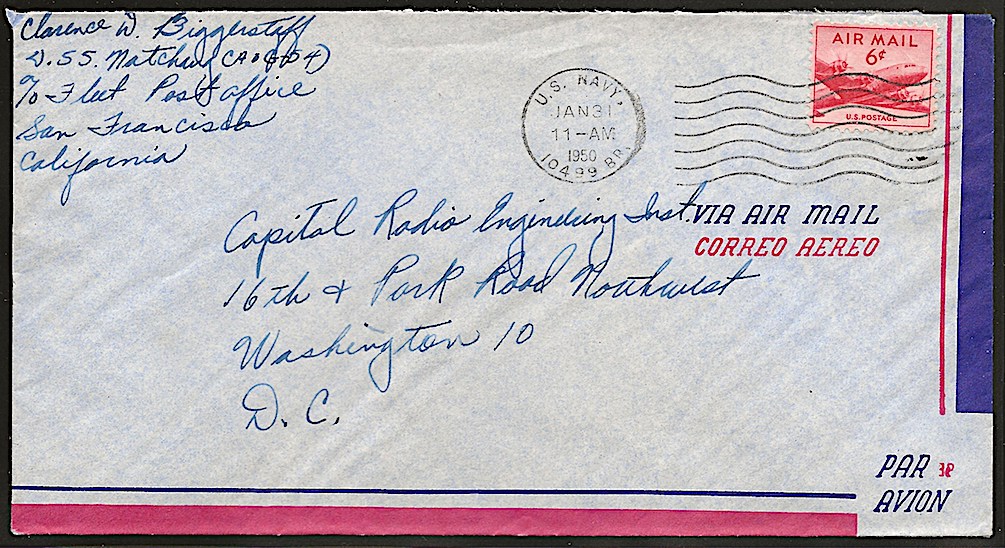 Clarence W. Biggerstaff
U.S.S. Natchaug (AOG-54)
c/o Fleet Post office
San Francisco
California
AIR MAIL
6¢
U.S. POSTAGE
U.S. NAVY.
JAN 31
11-AM
1950
10499 BR.
Capital Radio Engineering Inst.
16th & Park Road Northwest
Washington 10
D.C.
VIA AIR MAIL
CORREO AEREO
PAR
AVION